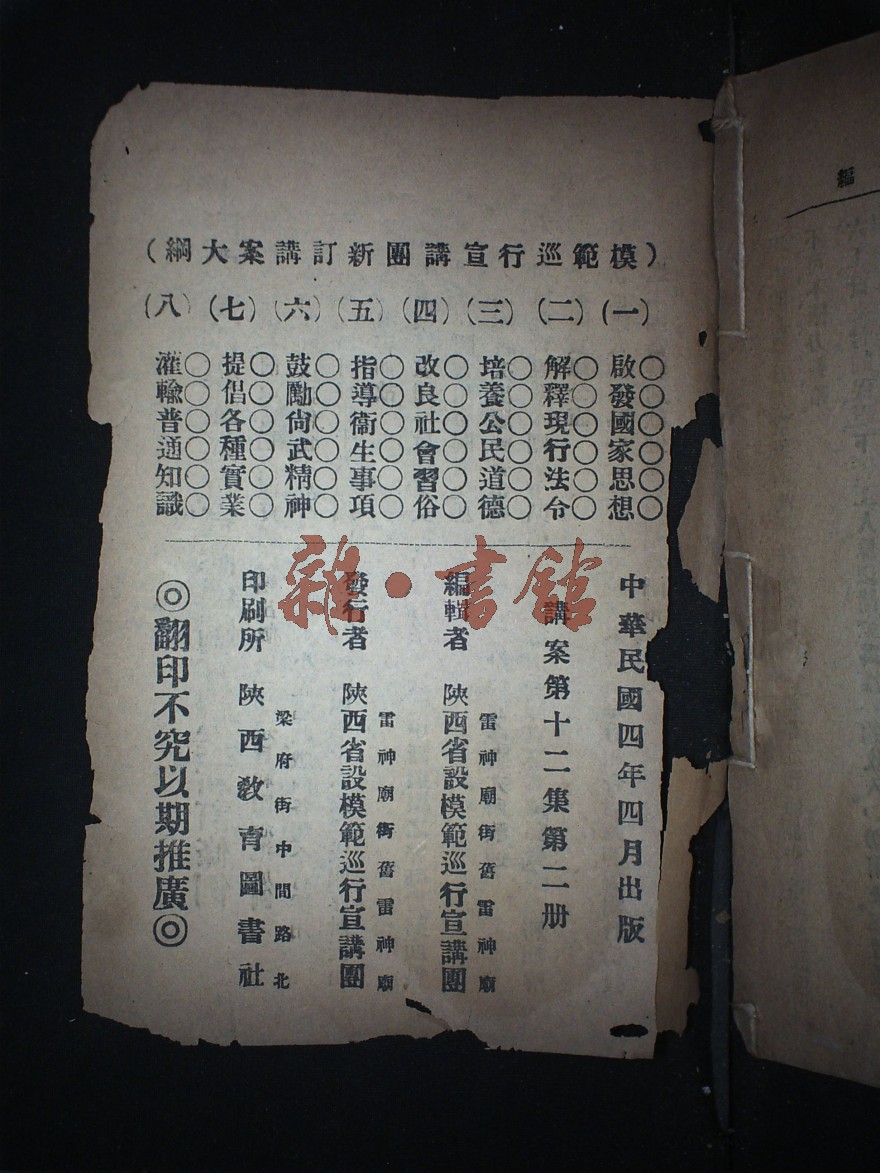 （模範巡行宣講團新訂講案大綱）
（一）
啟發國家思想
（二）
解釋現行法令
（三）
培養公民道德
（四）
改良社會習俗
（五）
指導衞生事項
（六）
鼓勵尙武精神
（七）
提倡各種實業
（八）
灌輸普通知識
中華民國四年四月出版
講案第十二集第二册
編輯者 陝西省設模範巡行宣講團
雷神廟街舊雷神廟
發行者 陝西省設模範巡行宣講團
雷神廟街舊雷神廟
印刷所 陝西教育圖書社
梁府街中間路北
◎翻印不究以期推廣◎
編
雜·書館